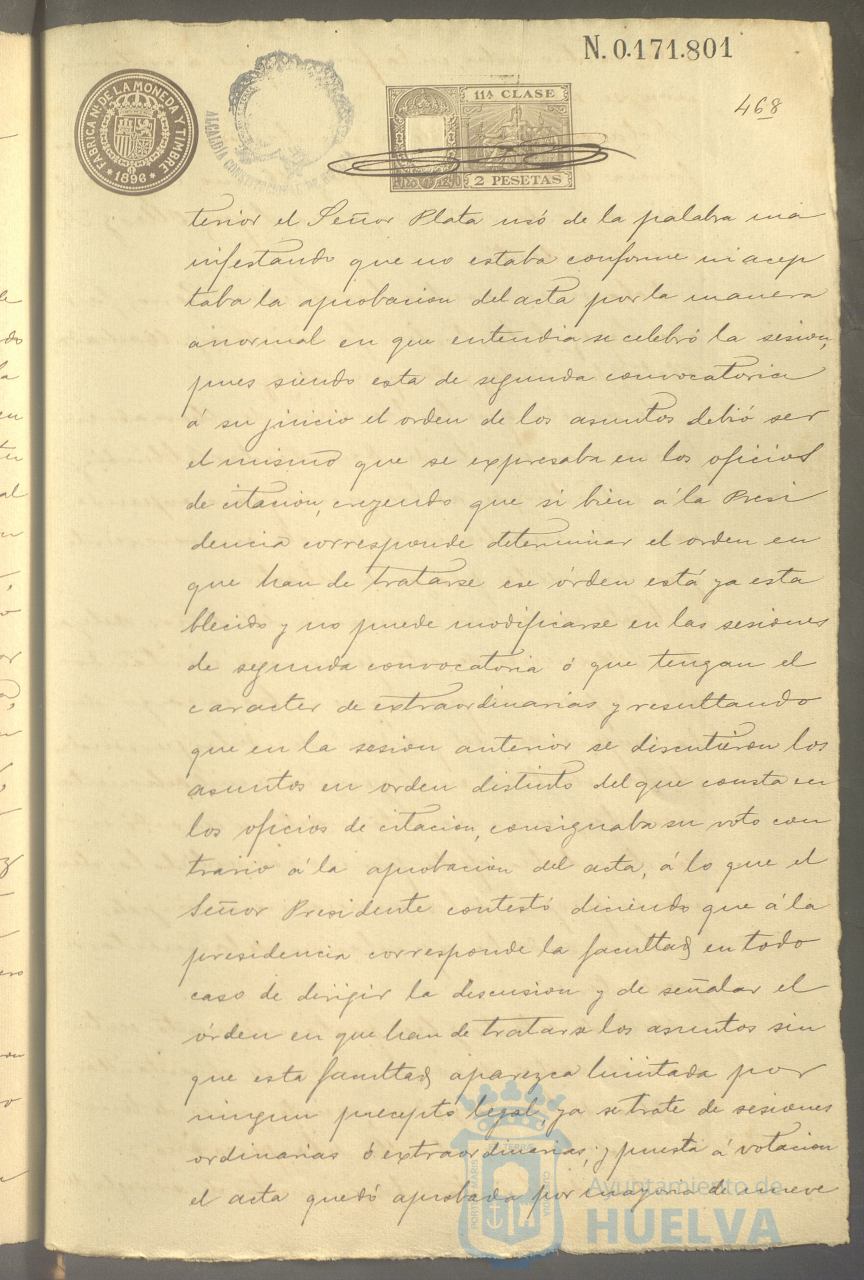 N. 0.171.801
468
FABRICA Nal. DE LA MONEDA Y TIMBRE
1896
ALCALDIA CONSTITUCIONAL DE
11A CLASE
2 PESETAS
terior el Señor Plata usó de la palabra ma
nifestando que no estaba conforme ni acep
taba la aprobacion del acta por la manera
anormal en que entendia se celebró la sesion,
pues siendo esta de segunda convocatoria
á su juicio el orden de los asuntos debió ser
el mismo que se expresaba en los oficios
de citacion, creyendo que si bien á la Presi
dencia corresponde determinar el orden en
que han de tratarse ese órden está ya esta
blecido y no puede modificarse en las sesiones
de segunda convocatoria ó que tengan el
caracter de extraordinarias y resultando
que en la sesion anterior se discutieron los
asuntos en orden distinto del que consta en
los oficios de citacion, consignaba su voto con
trario á la aprobacion del acta, á lo que el
Señor Presidente contestó diciendo que á la
presidencia corresponde la facultad en todo
caso de dirigir la discusion y de señalar el
órden en que han de tratarse los asuntos sin
que esta facultad aparezca limitada por
ningun precepto legal, ya se trate de sesiones
ordinarias ó extraordinarias; y puesta á votacion
el acta quedó aprobada por mayoria de nueve
Ayuntamiento de
HUELVA